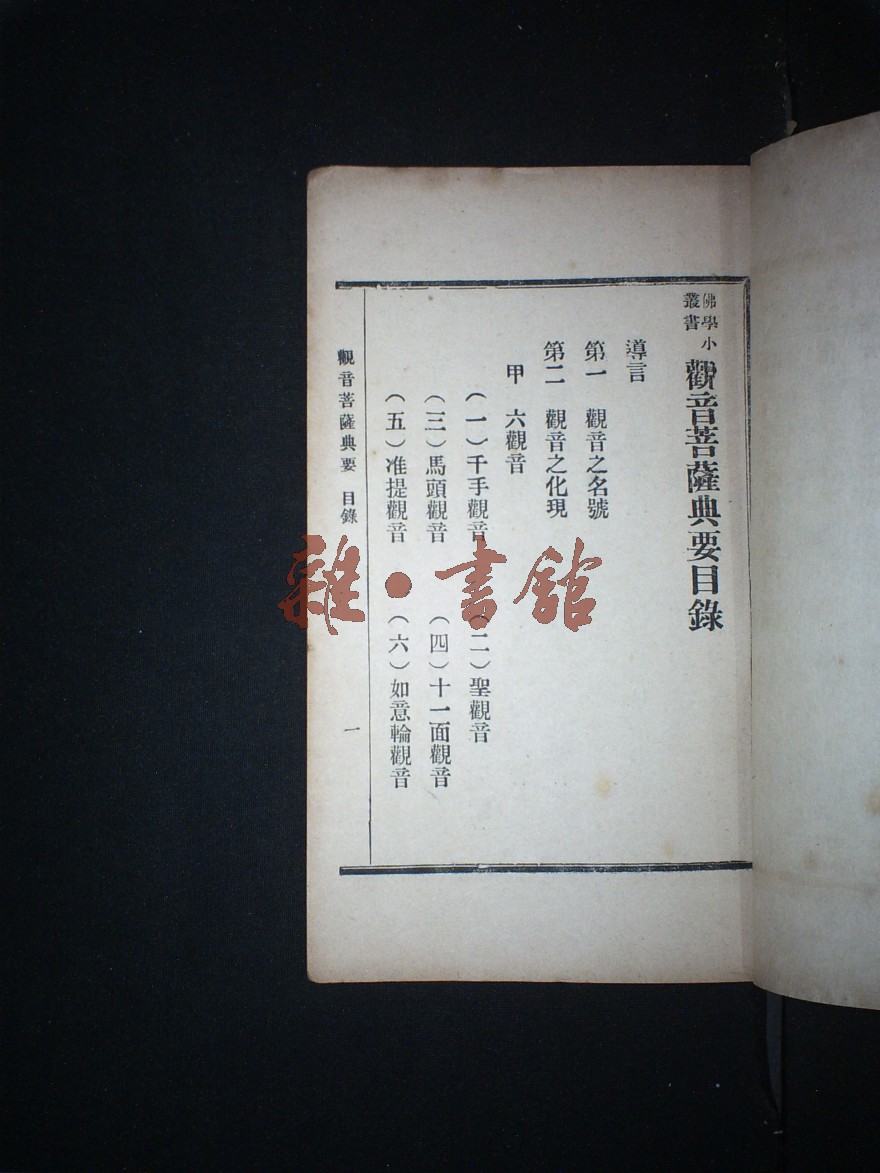 佛學小叢書 觀音菩薩典要目錄
導言
第一 觀音之名號
第二 觀音之化現
甲 六觀音
（一）千手觀音 （二）聖觀音
（三）馬頭觀音 （四）十一面觀音
（五）准提觀音 （六）如意輪觀音
觀音菩薩典要 目錄 一
雜·書館